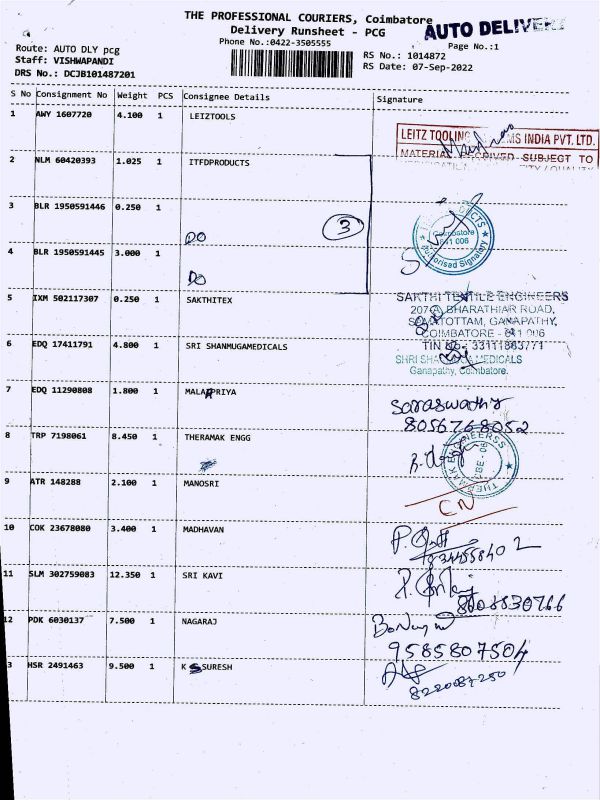 THE PROFESSIONAL COURIERS, Coimbatore
AUTO DELIVERY
Delivery Runsheet - PCG
Phone No.:0422-3505555
Page No.:1
Route: AUTO DLY pcg
RS No.: 1014872
Staff: VISHWAPANDI
RS Date: 07-Sep-2022
DRS No.: DCJB101487201
S No Consignment No Weight PCS Consignee Details Signature
1 AWY 1607720 4.100 1 LEIZTOOLS
LEITZ TOOLING MS INDIA PVT. LTD.
MATERIAL RECEIVED SUBJECT TO
2 NLM 60420393 1.025 1 ITFDPRODUCTS
3 BLR 1950591446 0.250 1
DO
3
Coimbatore
641 006
Authorised Signatory
4 BLR 1950591445 3.000 1
DO
5 IXM 502117307 0.250 1 SAKTHITEX
SAKTHI TEXTILE ENGINEERS
BHARATHIAR ROAD,
GANAPATHY,
COIMBATORE - 641 006
6 EDQ 17411791 4.800 1 SRI SHANMUGAMEDICALS
TIN No.- 33111863771
MEDICALS
Ganapathy, Coimbatore.
7 EDQ 11290808 1.800 1 MALARPRIYA
Saraswathy
8056768052
8 TRP 7198061 8.450 1 THERAMAK ENGG
9 ATR 148288 2.100 1 MANOSRI
CN
10 COK 23678080 3.400 1 MADHAVAN
11 SLM 302759083 12.350 1 SRI KAVI
12 PDK 6030137 7.500 1 NAGARAJ
9585807504
3 HSR 2491463 9.500 1 K SURESH
8220087250